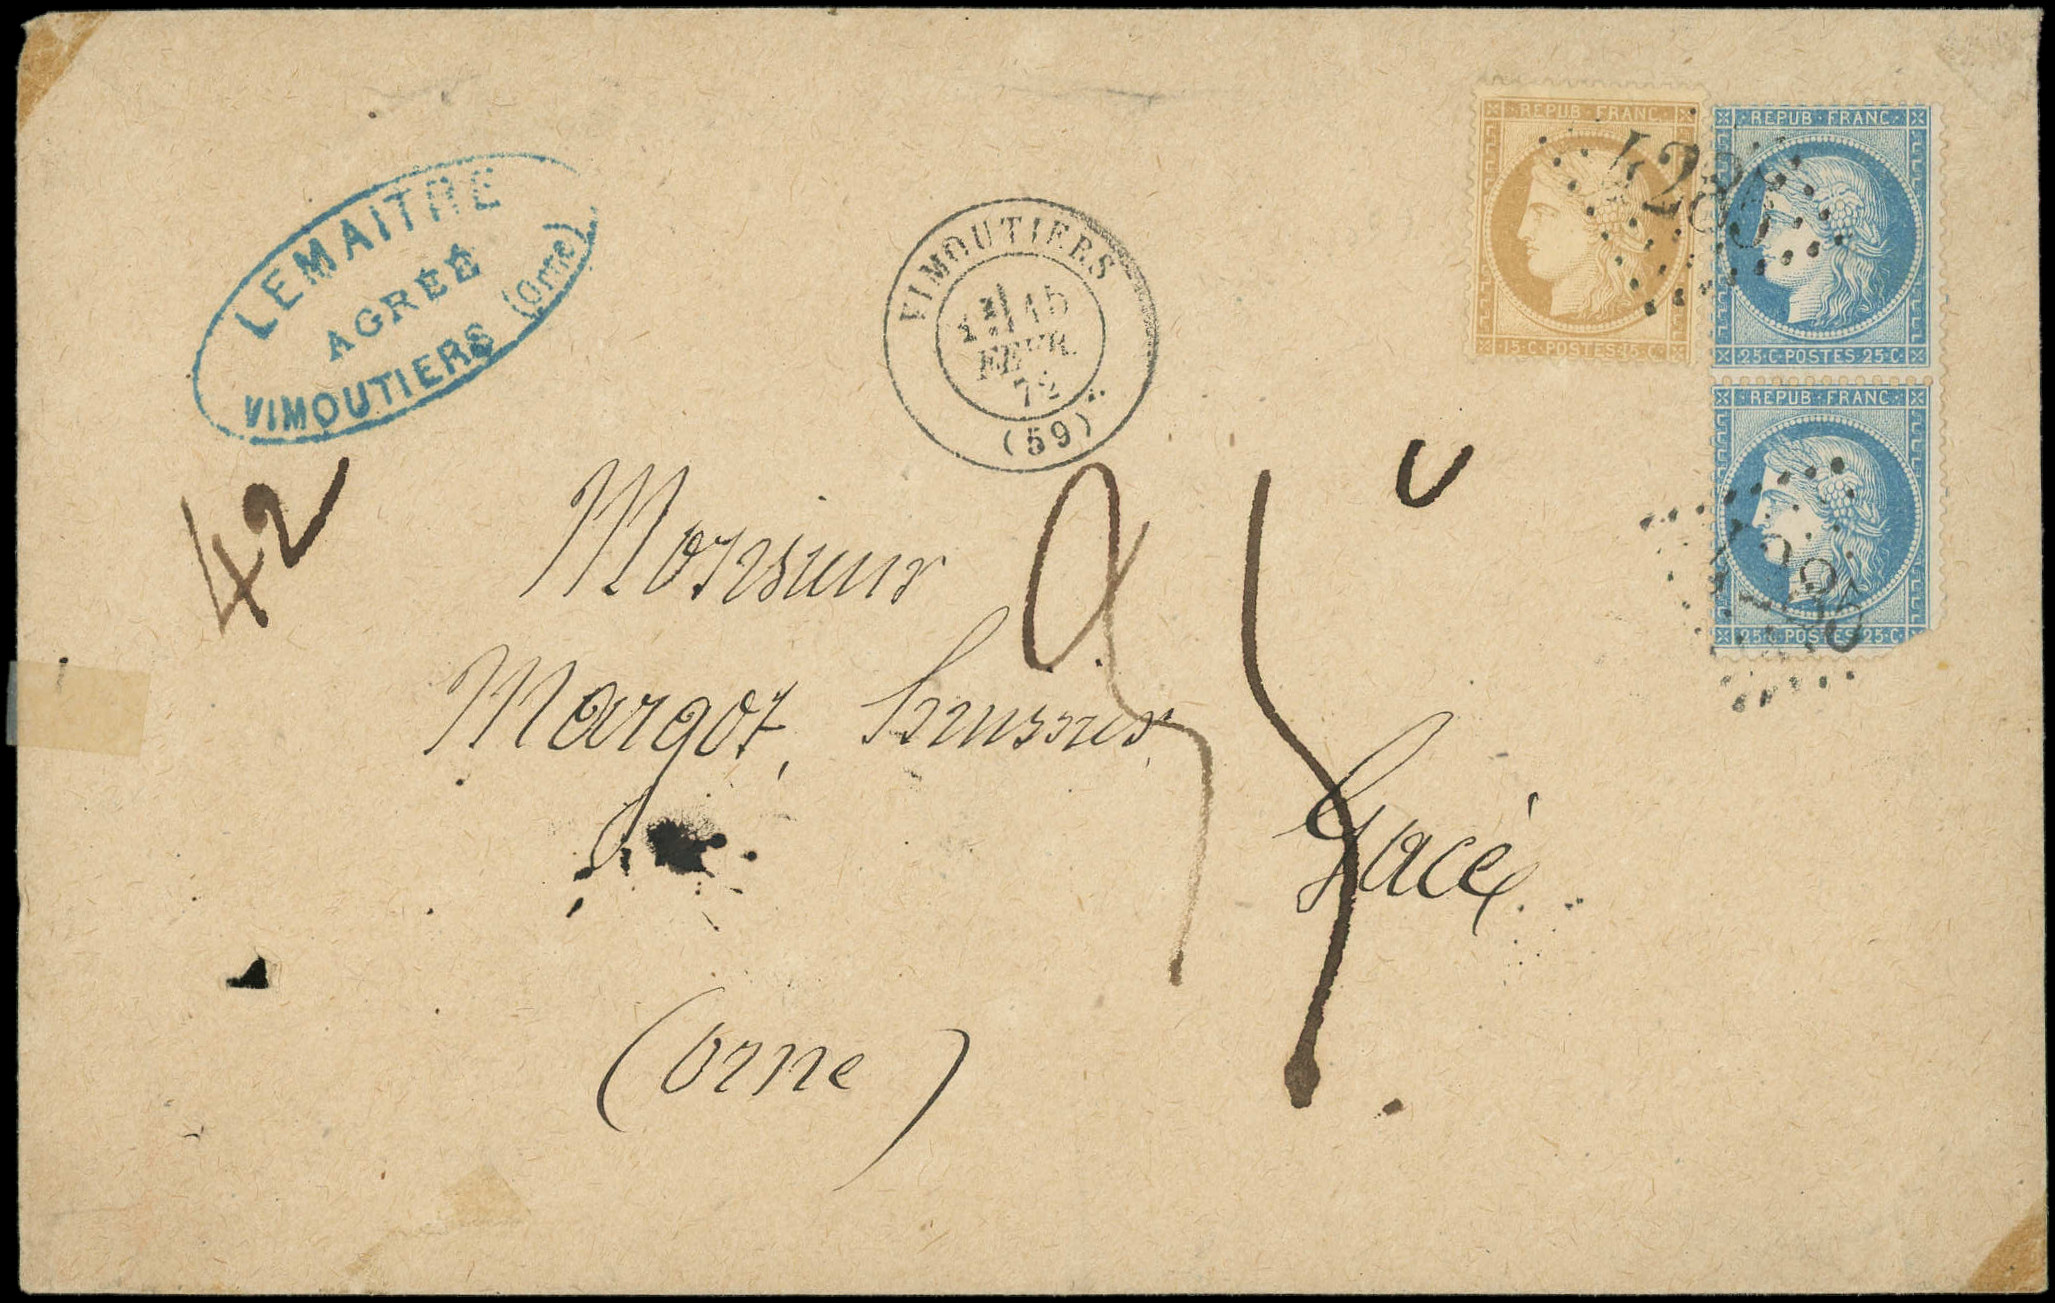 LEMAITRE
AGRÉÉ
VIMOUTIERS (Orne)
VIMOUTIERS
15
FEVR.
72
(59)
REPUB·FRANC
15·C·POSTES·15·C
REPUB·FRANC
25·C·POSTES·25·C
4286
REPUB·FRANC
25·C·POSTES·25·C
4286
42
Monsieur
Margot, huissier
Gacé
(Orne)